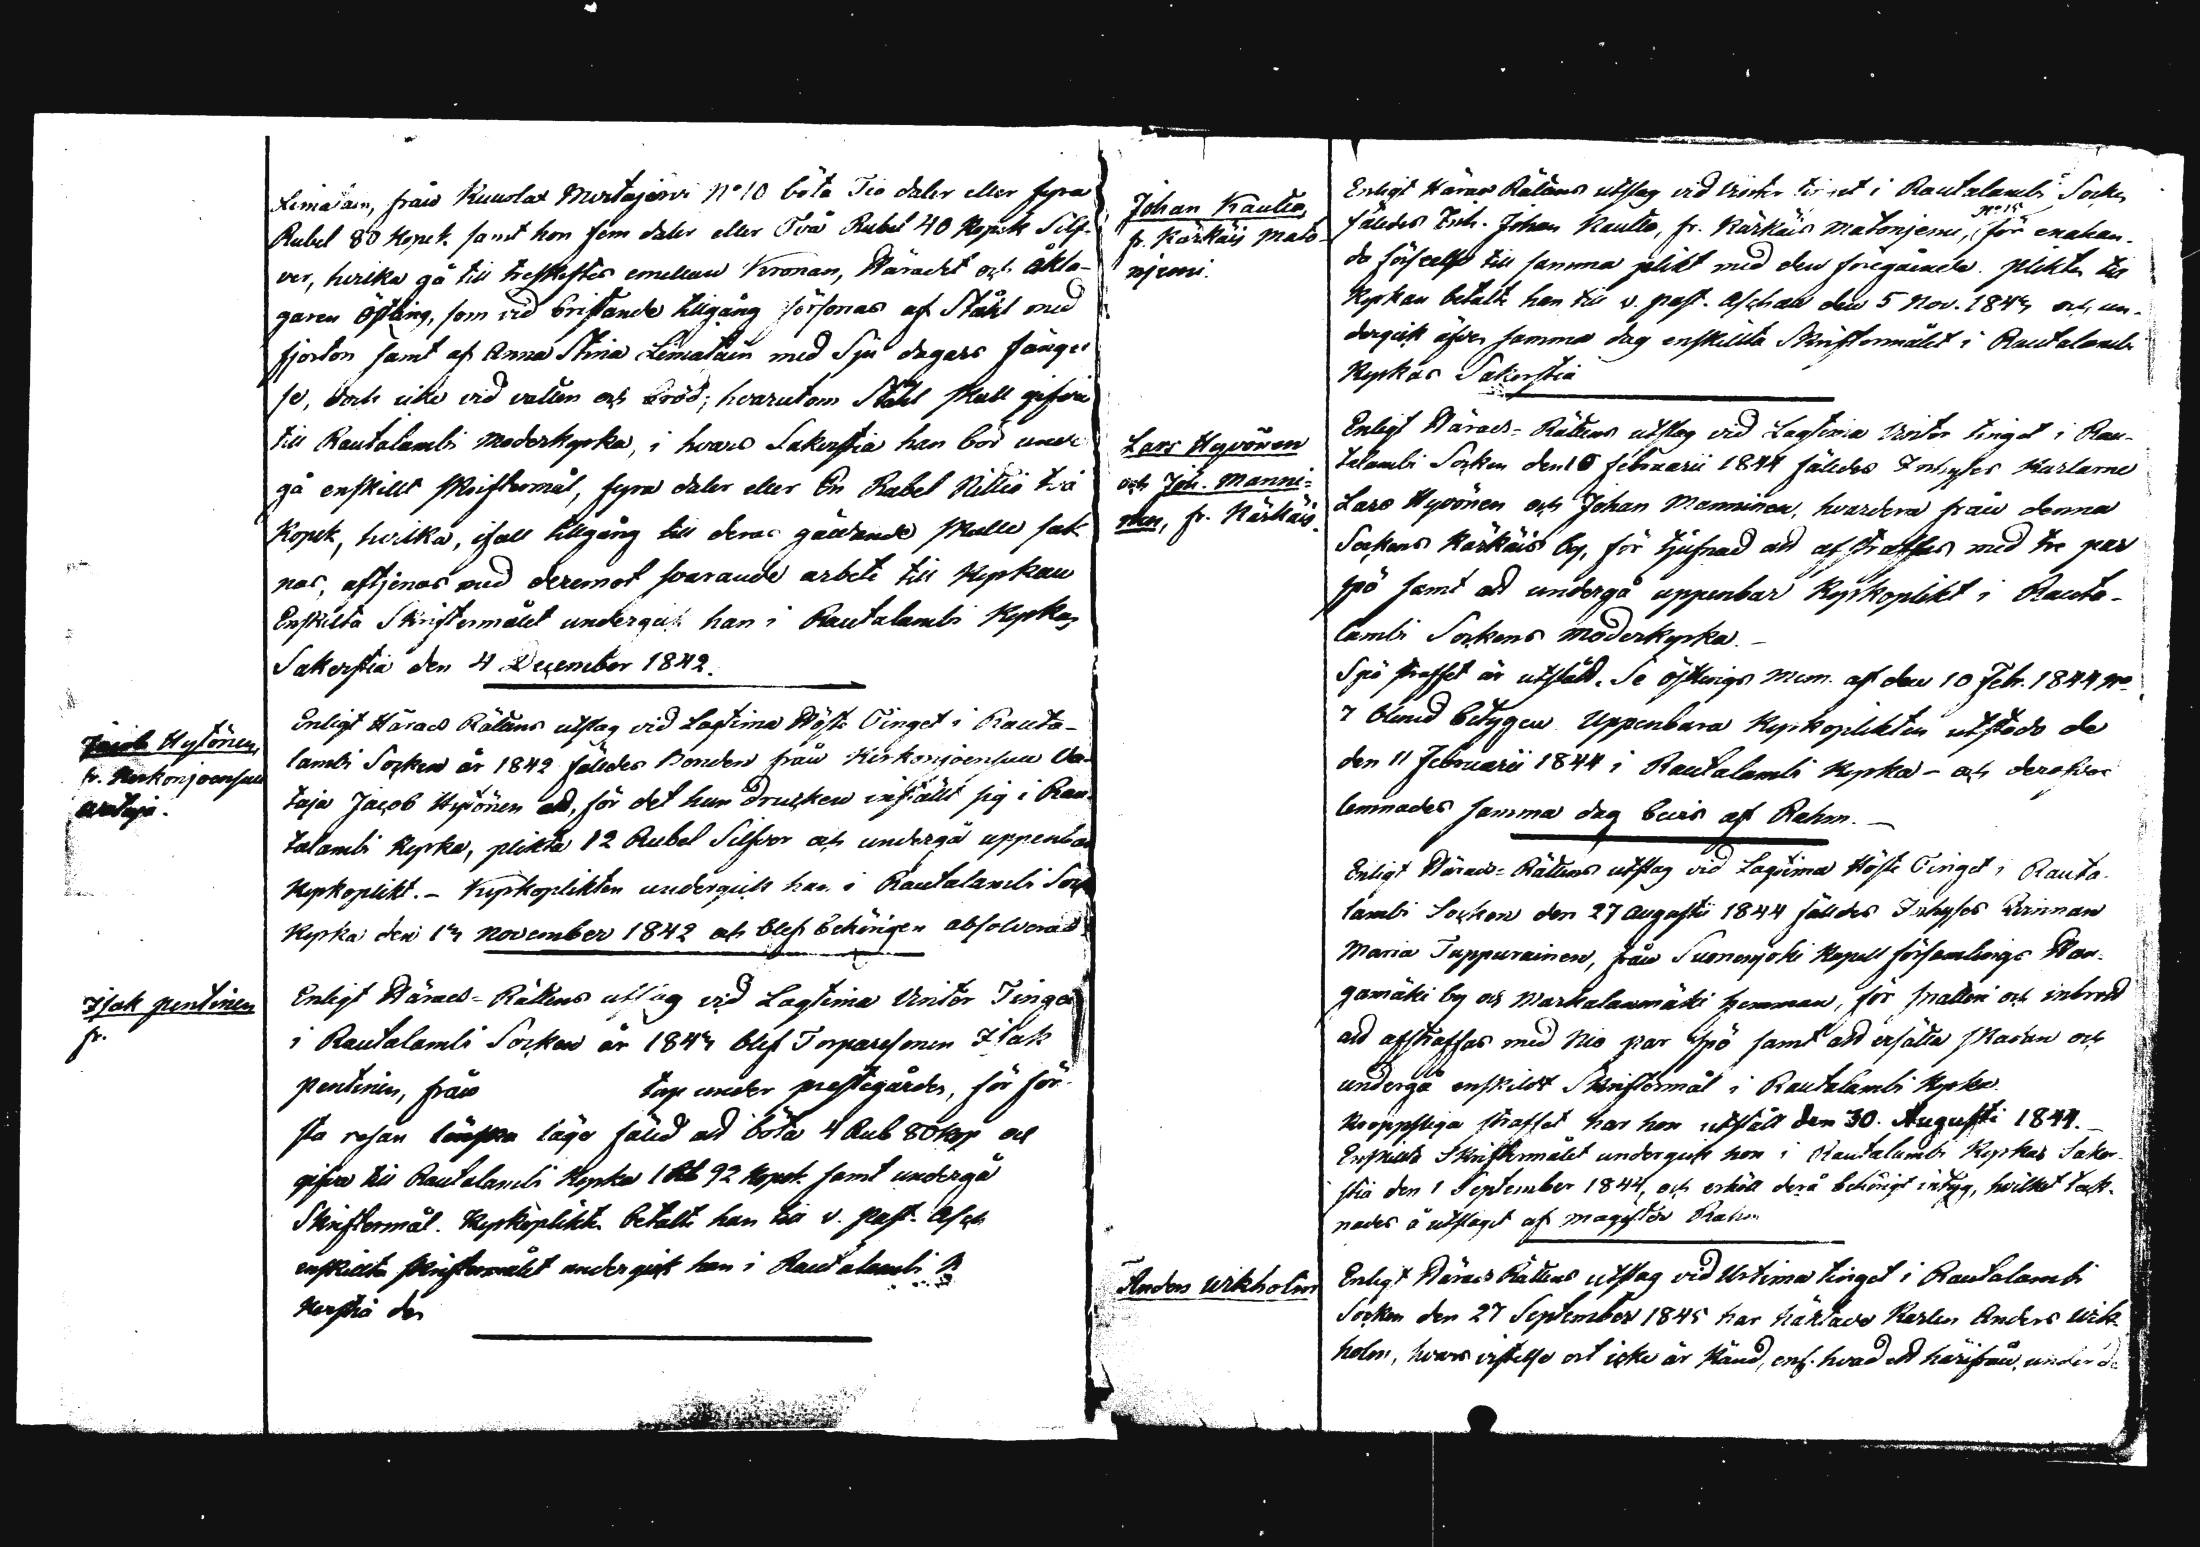 Limatain, från Kuuslax Mustajärvi No 10 böta Tio daler eller fyra
Rubel 80 Kopek samt hon fem daler eller Två Rubel 40 Kopek Silf-
ver, hvilka gå till treskiftes emellan Kronan, Häradet och åkla-
garen Östling, som vid bristande tillgång försonas af Ståhl med
fjorton samt af Anna Stina Limatain med Sju dagars fängel
se, och vid vatten och bröd; hvarutom Ståhl skall gifva
till Rautalambi Moderkyrka, i hvars Sakerstia han bör under
gå enskillt Skriftermål, fyra daler eller En Rubel Nittio två
Kopek, hvilka, ifall tillgång till deras gäldande skulle sak
nas, aftjenas med deremot svarande arbete till Kyrkan
Enskilta Skriftermålet undergick han i Rautalambi Kyrkas
Sakerstia den 4 December 1842.
Jacob Hytönen,
fr. Kerkonjoensuu
Enligt Härads Rättens utslag vid Lagtima Höste Tinget i Rauta-
lambi Socken år 1842 fälldes Bonden från Kerkonjoensuu
Jacob Hytönen att, för det han drucken inställt sig i Rau-
talambi Kyrka, plikta 12 Rubel Silfver och undergå uppenbar
Kyrkoplikt. - Kyrkoplikten undergick han i Rautalambi Sock
Kyrka den 13 November 1842 och blef behörigen absolverad.
Isak Pentinen
fr.
Enligt Härads-Rättens utslag vid Lagtima Vinter Tinget
i Rautalambi Socken år 1843 blef Torparesonen Isak
Pentinen, från torp under prestegården, för för-
sta resan lönska läge fälld att böta 4 Rub 80 kop och
gifva till Rautalambi Kyrka 1 Rb 92 Kopek samt undergå
Skriftermål. Kyrkoplikten betalte han till v. Past. Asch
enskillta skriftermålet undergick han i Rautalambi
kerstia den
Johan Kautto,
fr. Kärkäis Mato-
njemi.
Enligt Härads Rättens utslag vid Vinter tinget i Rautalambi Socken
fäldes Inh. Johan Kautto, fr. Kärkäis Matonjemi, No 15 för enahan-
da förseelse till samma plikt med den föregående. Plikten till
Kyrkan betalte han till v. past. Aschan den 5 Nov. 1843 och un-
dergick äfven samma dag enskillta Skriftermålet i Rautalambi
Kyrkas Sakerstia
Lars Hyvönen
och Joh. Manni-
nen, fr. Kärkäis.
Enligt Härads-Rättens utslag vid Lagtima Vinter tinget i Rau-
talambi Socken den 10 februarii 1844 fäldes Inhyses Karlarne
Lars Hyvönen och Johan Manninen, hvardera från denna
Sockens Kärkäis by, för tjufnad att afstraffas med tre par
spö samt att undergå uppenbar Kyrkoplikt i Rauta-
lambi Sockens moderkyrka. -
Spö straffet är utståtd. Se Östlings Mem. af den 10 Febr. 1844 No
7 bland betygen. Uppenbara Kyrkoplikten utstodo de
den 11 Februarii 1844 i Rautalambi Kyrka - och deröfver
lemnades samma dag bevis af Rahm. -
Enligt Härads-Rättens utslag vid Lagtima Höste Tinget i Rauta-
lambi Socken den 27 Augusti 1844 fälldes Inhyses Qvinnan
Maria Tuppurainen, från Suonenjoki Kapell församlings Han-
gamäki by och Markalanmäki hemman, för snatteri och inbrott
att afstraffas med Nio par spö samt att ersätta skadan och
undergå enskildt Skriftermål i Rautalambi Kyrka.
Kroppsliga straffet har hon utstått den 30. Augusti 1844. -
Enskilda Skriftermålet undergick hon i Rautalambi Kyrkas Saker-
stia den 1 September 1844, och erhöll derå behörigt intyg, hvilket teck-
nades å utslaget af Magister Rahm
Anders Wikholm
Enligt Härads Rättens utslag vid Urtima tinget i Rautalambi
Socken den 27 September 1845 har häktade Karlen Anders Wik-
holm, hvars vistelse ort icke är känd, enl. hvad att härifrån under de